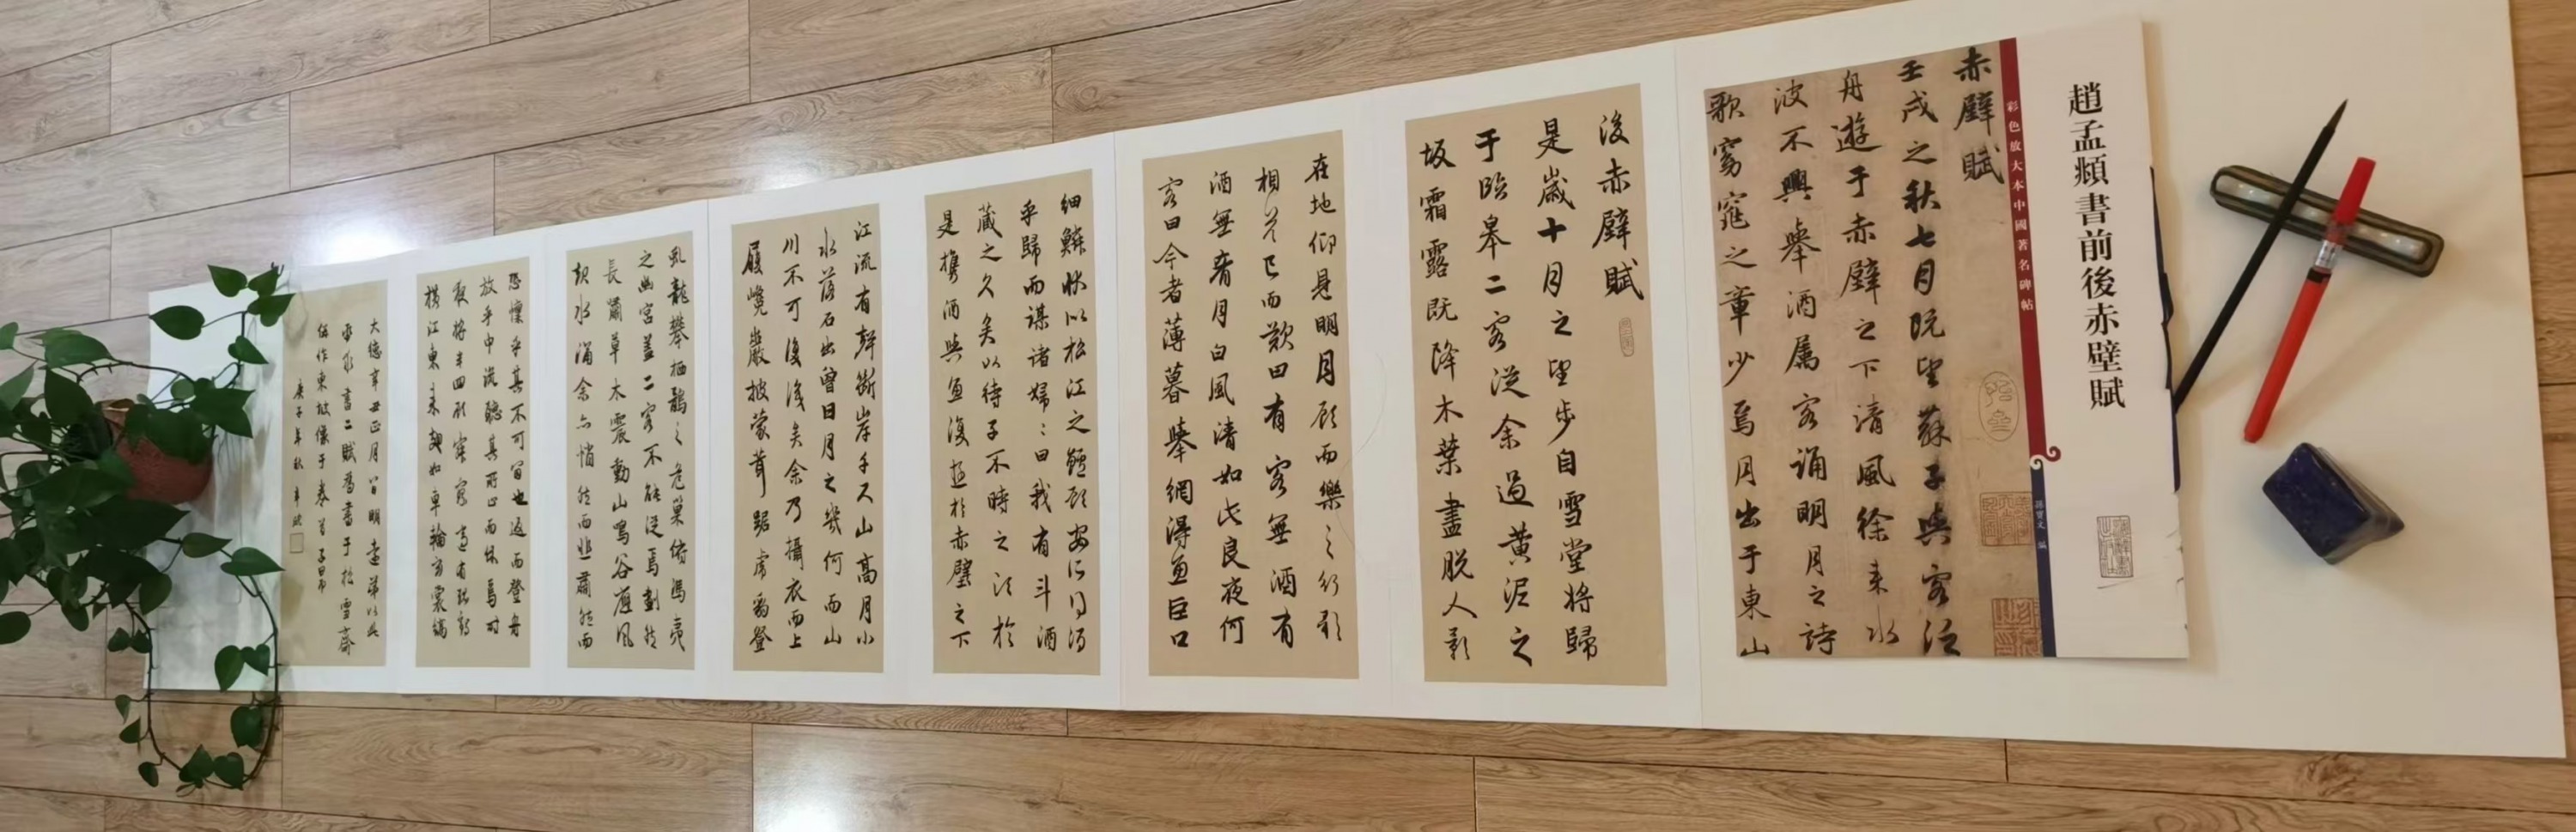 趙孟頫書前後赤壁賦
彩色放大本中國著名碑帖
孫寶文 編
赤壁賦
壬戌之秋七月既望蘇子與客泛
舟遊于赤壁之下清風徐来水
波不興舉酒属客誦明月之詩
歌窈窕之章少焉月出于東山
後赤壁賦
是歲十月之望步自雪堂将歸
于臨皋二客従余過黄泥之
坂霜露既降木葉盡脱人影
在地仰見明月顧而樂之行歌
相答已而歎曰有客無酒有
酒無肴月白風清如此良夜何
客曰今者薄暮舉網得魚巨口
細鱗状似松江之鱸顧安所得酒
乎歸而謀諸婦〻曰我有斗酒
蔵之久矣以待子不時之須於
是攜酒與魚復遊於赤壁之下
江流有聲斷岸千尺山高月小
水落石出曾日月之幾何而山
川不可復識矣余乃攝衣而上
履巉巖披蒙茸踞虎豹登
虬龍攀栖鶻之危巢俯馮夷
之幽宮盖二客不能従焉劃然
長嘯草木震動山鳴谷應風
起水涌余亦悄然而悲肅然而
恐懍乎其不可留也返而登舟
放乎中流聽其所止而休焉時
夜将半四顧寂寥適有孤鶴
横江東来翅如車輪玄裳縞
大德辛丑正月八日明遠弟以此
帋求書二賦為書于松雪齋
併作東坡像于卷首子昂
庚子年秋